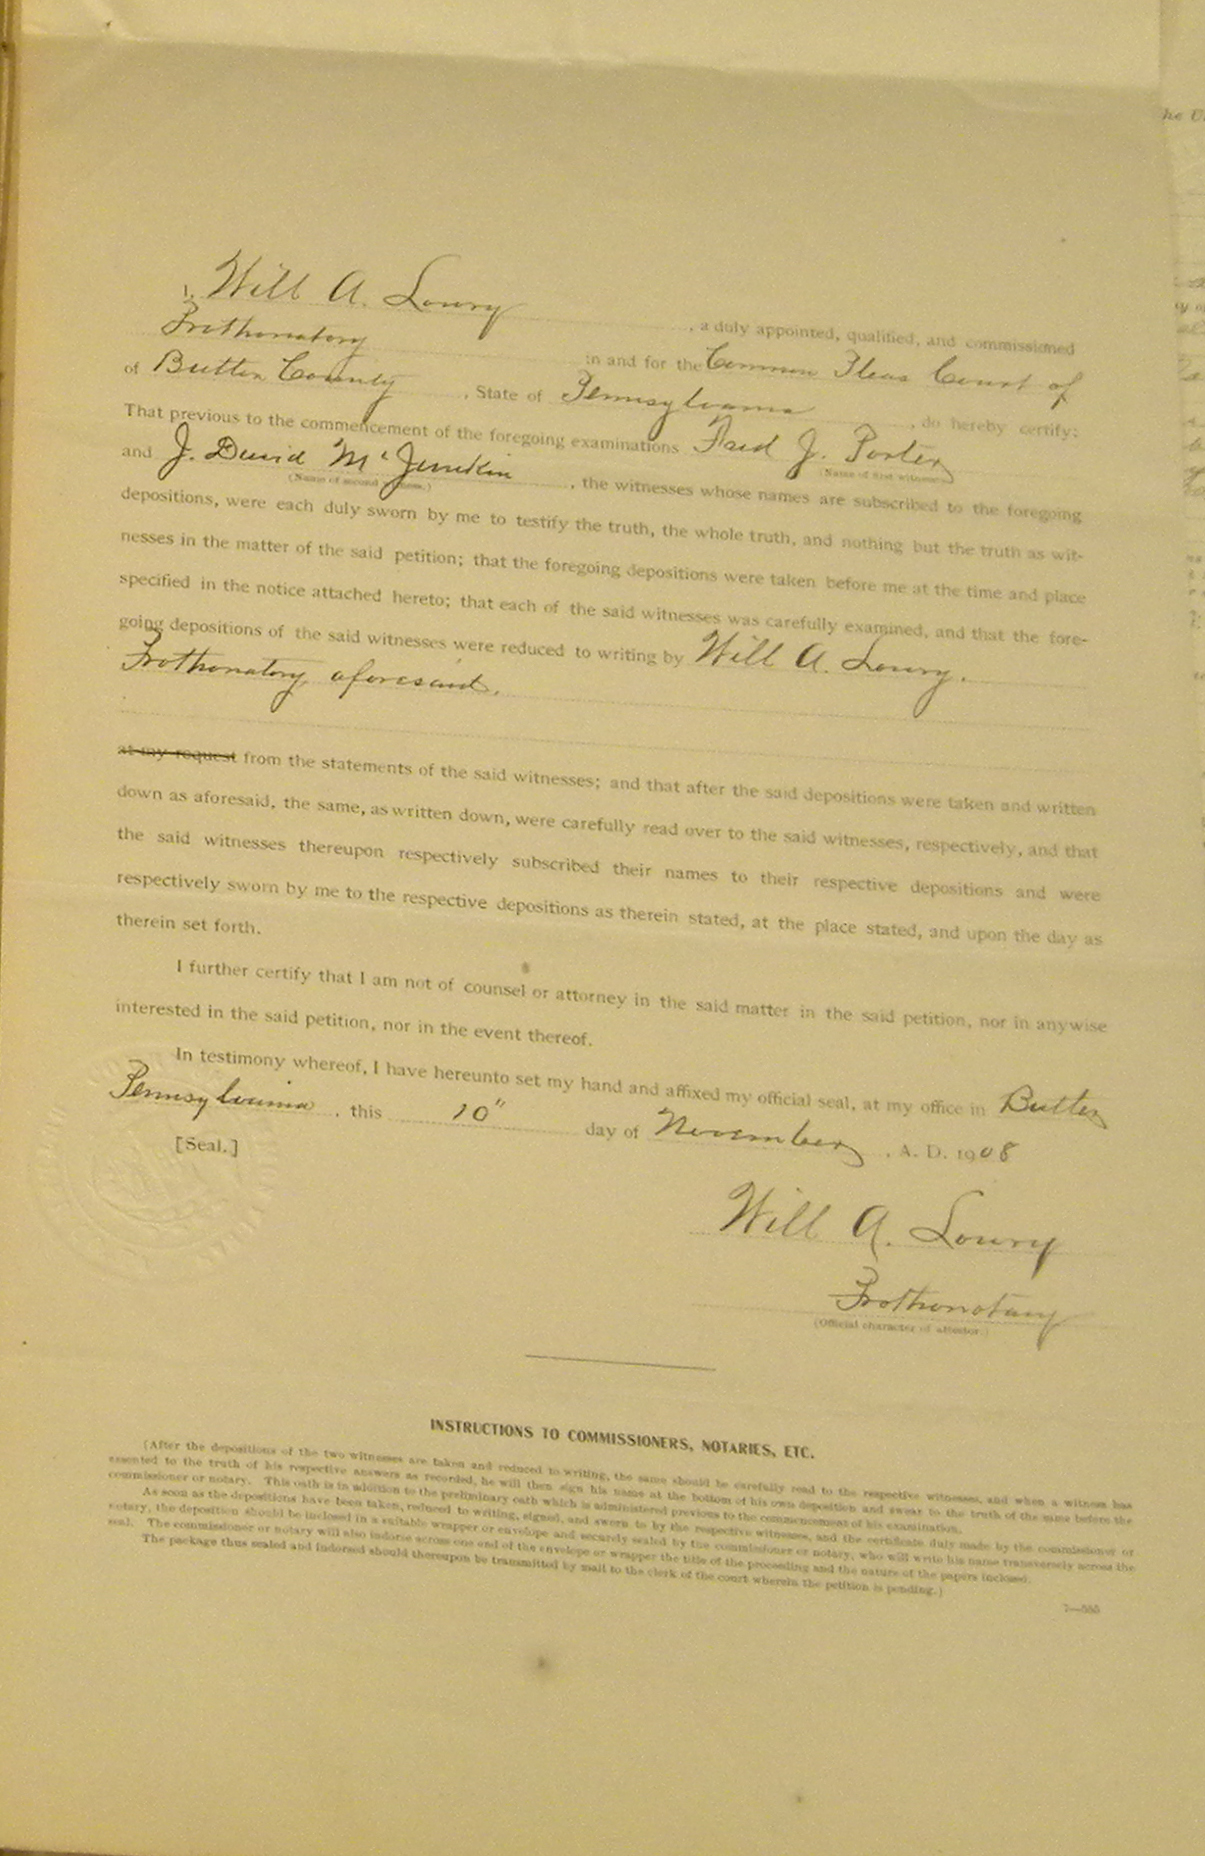 I, Will A. Lowry, a duly appointed, qualified, and commissioned
Prothonotary in and for the Common Pleas Court of
of Butler County, State of Pennsylvania, do hereby certify:
That previous to the commencement of the foregoing examinations J. Porter
(Name of first witness)
and J. David McJunkin, the witnesses whose names are subscribed to the foregoing
(Name of second witness.)
depositions, were each duly sworn by me to testify the truth, the whole truth, and nothing but the truth as wit-
nesses in the matter of the said petition; that the foregoing depositions were taken before me at the time and place
specified in the notice attached hereto; that each of the said witnesses was carefully examined, and that the fore-
going depositions of the said witnesses were reduced to writing by Will A. Lowry.
Prothonotary aforesaid.
at my request from the statements of the said witnesses; and that after the said depositions were taken and written
down as aforesaid, the same, as written down, were carefully read over to the said witnesses, respectively, and that
the said witnesses thereupon respectively subscribed their names to their respective depositions and were
respectively sworn by me to the respective depositions as therein stated, at the place stated, and upon the day as
therein set forth.
I further certify that I am not of counsel or attorney in the said matter in the said petition, nor in anywise
interested in the said petition, nor in the event thereof.
In testimony whereof, I have hereunto set my hand and affixed my official seal, at my office in Butler
Pennsylvania, this 10" day of November, A. D. 1908
[Seal.]
Will A. Lowry
Prothonotary
(Official character of attestor.)
INSTRUCTIONS TO COMMISSIONERS, NOTARIES, ETC.
(After the depositions of the two witnesses are taken and reduced to writing, the same should be carefully read to the respective witnesses, and when a witness has
assented to the truth of his respective answers as recorded, he will then sign his name at the bottom of his own deposition and swear to the truth of the same before the
commissioner or notary. This oath is in addition to the preliminary oath which is administered previous to the commencement of his examination.
As soon as the depositions have been taken, reduced to writing, signed, and sworn to by the respective witnesses, and the certificate duly made by the commissioner or
notary, the deposition should be inclosed in a suitable wrapper or envelope and securely sealed by the commissioner or notary, who will write his name transversely across the
seal. The commissioner or notary will also indorse across one end of the envelope or wrapper the title of the proceeding and the nature of the papers inclosed.
The package thus sealed and indorsed should thereupon be transmitted by mail to the clerk of the court wherein the petition is pending.)